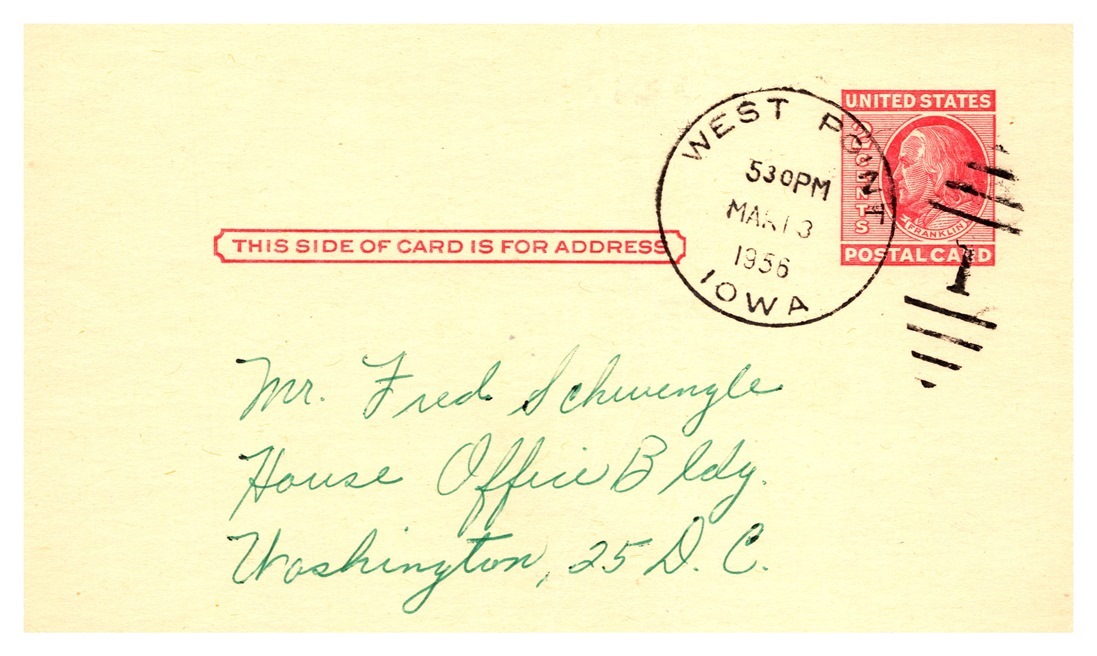 UNITED STATES
2 CENTS
FRANKLIN
POSTAL CARD
WEST POINT
530PM
MAR 13
1956
IOWA
1
THIS SIDE OF CARD IS FOR ADDRESS
Mr. Fred Schwengle
House Office Bldg.
Washington, 25 D. C.